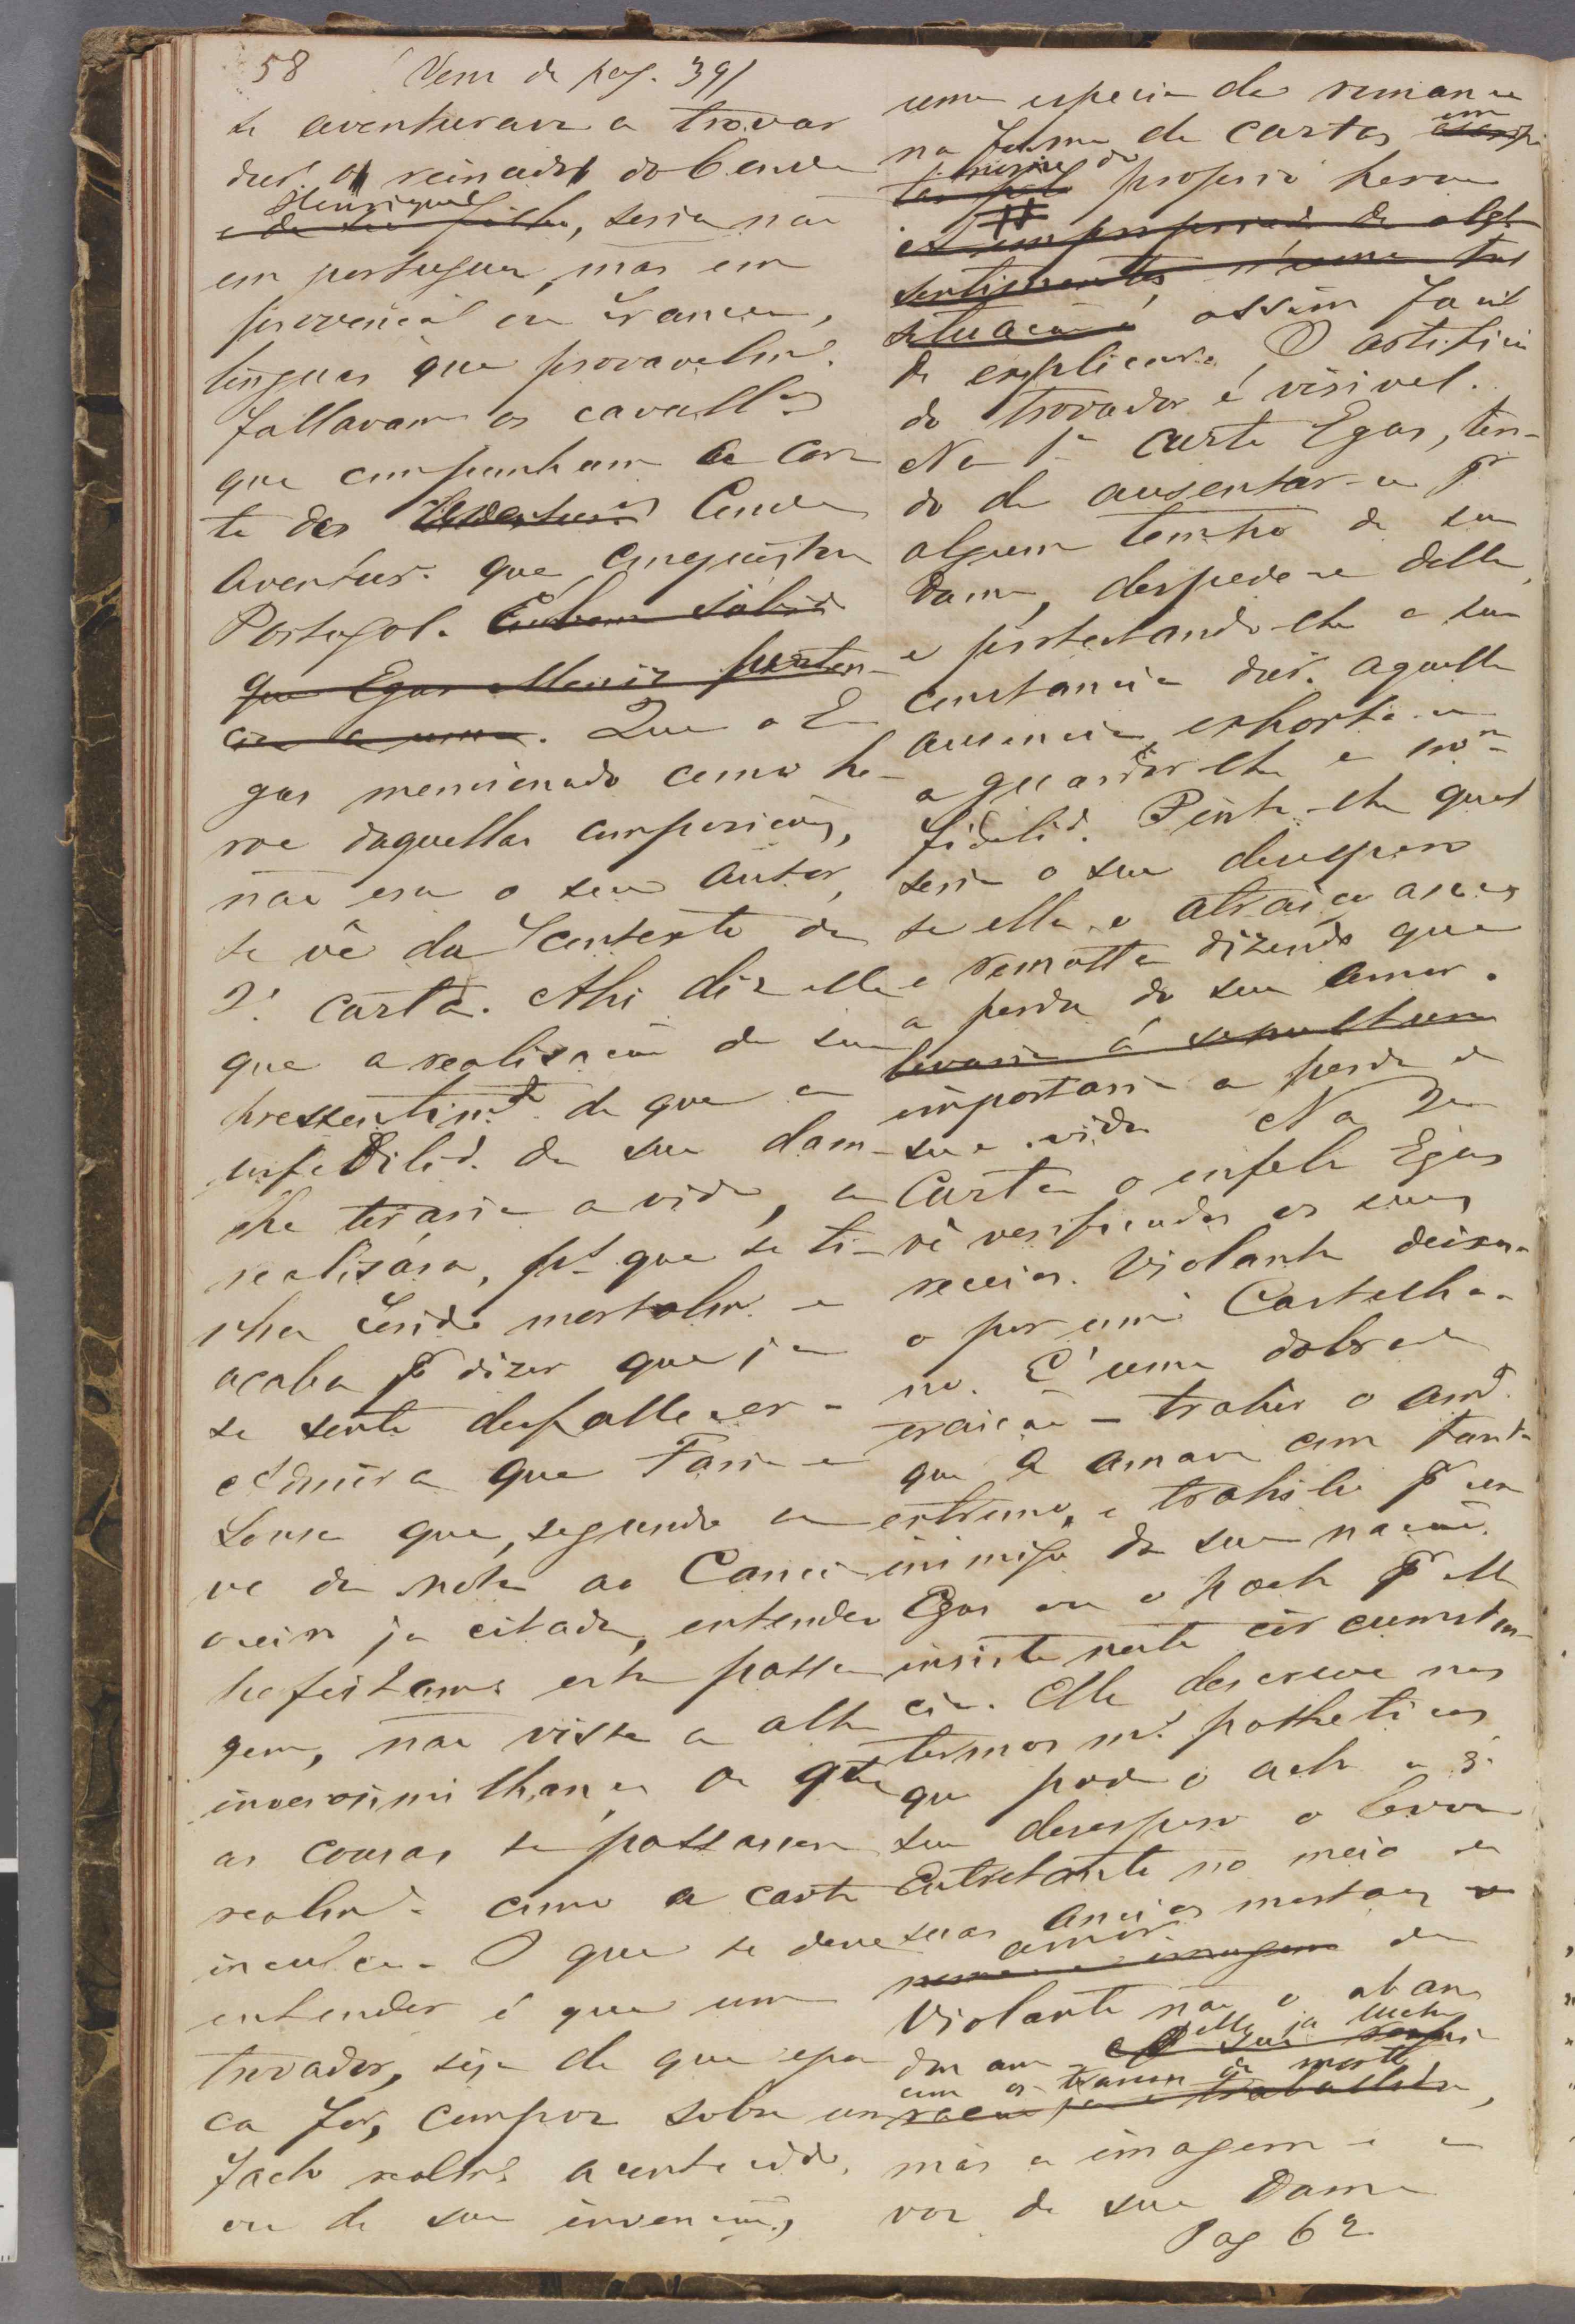 58 Vem de pag. 39
se aventurava a trovar
dur. o reinado do Conde
Henrique
e de seu filho, seria não
em portuguez, mas em
provençal ou Francez,
linguas que provavelm.e
fallavam os cavall.os
que compunham a cor
te do Conde
Aventur.o que conquistou
Portugal.
que Egas Moniz perten-
cia a essa. Que o E
gas mencionado como he-
roe daquellas composições,
não era o seu autor,
se vê do contexto da
2.a carta. Ahi diz elle
que a realisação de seu
pressentim.to de que a
infidilid.e de sua dam
lhe tiraria a vida, se
realisára, pois que se ti-
nha ferido mortalm.e e
acaba p.r dizer que já
se sente desfallecer.
Admira que Faria e
Sousa que, segundo se
vê da nota ao Canci
oneiro já citada, entendeu
esta passa
gem, não visse a alta
inverosimilhança de que
as cousas se passassem
realm.e como a carta
inculca. O que se deve
entender é que um
trovador, seja de que epo
ca for, compoz sobre um
facto realm.e acontecido,
ou de sua invenção,
uma especie de romance
na forma de cartas em
nome do
proprio heroe
sentimentos, n'uma tal
situação é assim facil
de explicar. O artificio
do trovador é visivel.
Na 1.a carta Egas, ten-
do de ausentar-se p.r
algum tempo de sua
Dama, despede-se della,
e protestando-lhe a sua
constancia dur. aquella
ausencia, exhorta-a
a guardar-lhe a
fidelid.e Pinta-lhe qual
seria o seu desespero
se ella o atraiçoasse
e remata dizendo que
a perda do seu amor
levaria á sepultura
importaria a perda da
sua vida. Na 2.a
Carta o infeliz Egas
vê verificados os seus
receios. Violante deixa-
o por um Castelha-
no. É uma dobrada
traição - trahir o am.e
que a amava com tanto
extremo, e trahil-o p.r um
inimigo da sua nação.
Egas ou o poeta p.r elle
insiste nesta circumstan-
cia. Elle descreve nos
termos m.s patheticos
que pode o acto a q.
seu desespero o levou
Entretanto no meio de
suas ancias mortaes o
amor
imagem de
Violante não o aban
elle já lucta
dona
com os transes da morte
trabalhada,
mas a imagem e a
voz de sua Dama
Pag 62